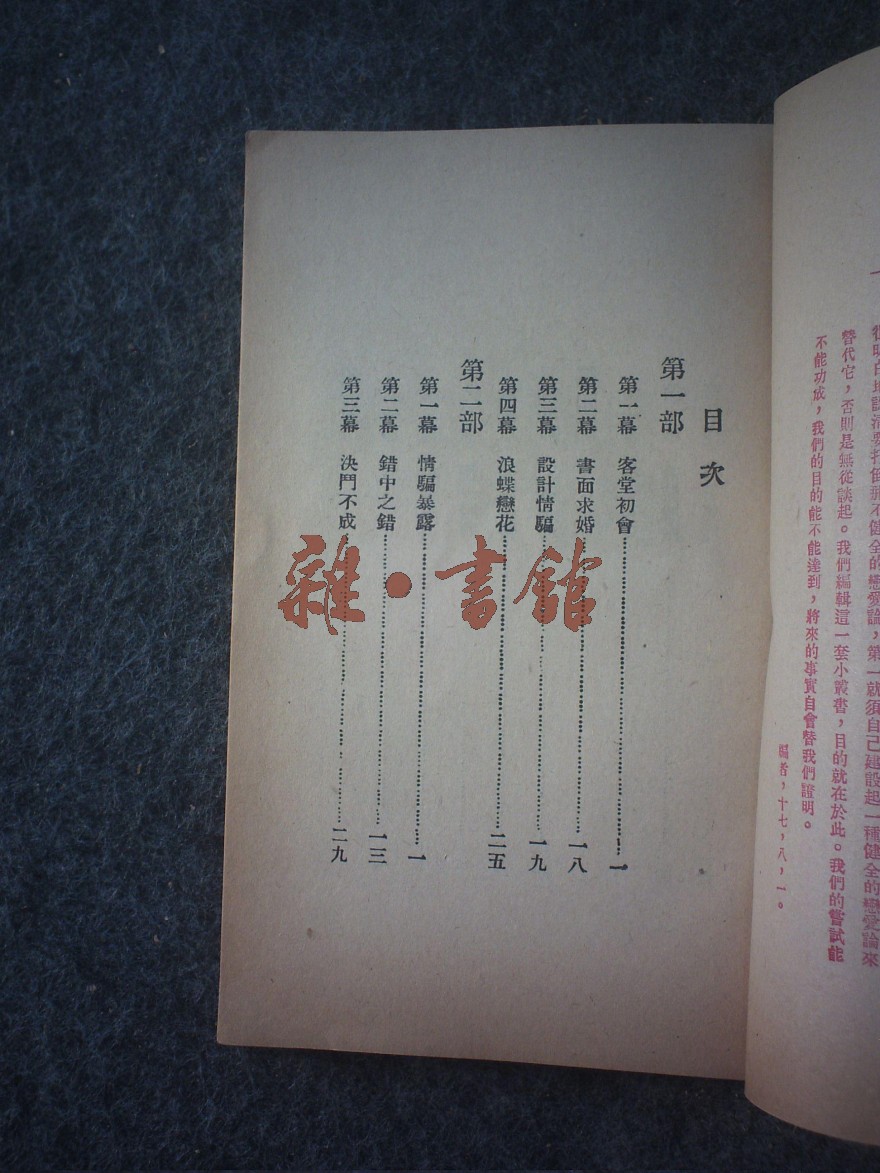 從明白地認清要打倒那不健全的戀愛論，第一就須自己建設起一種健全的戀愛論來
替代它，否則是無從談起。我們編輯這一套小叢書，目的就在於此。我們的嘗試能
不能功成，我們的目的能不能達到，將來的事實自會替我們證明。
編者，十七，八，一。
目次
第一部
第一幕 客堂初會……一
第二幕 書面求婚……一八
第三幕 設計情騙……一九
第四幕 浪蝶戀花……二五
第二部
第一幕 情騙暴露……一
第二幕 錯中之錯……一三
第三幕 決鬥不成……二九
雜·書館